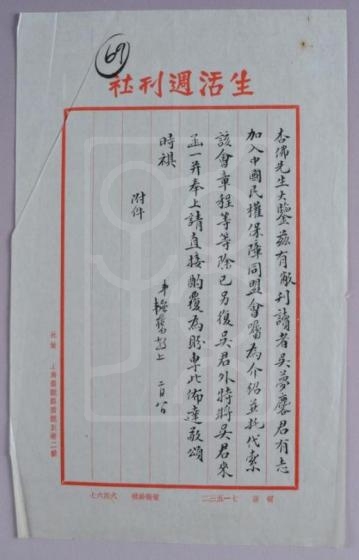 69
生活週刊社
杏佛先生大鑒茲有敝刊讀者吳夢麐君有志
加入中國民權保障同盟會囑為介紹並托代索
該會章程等等除已另復吳君外特將吳君來
函一并奉上請直接酌覆為盼專此佈達敬頌
時祺
附件
弟韜奮敬上 二月
電話 七一五三二
電報掛號 七六四八